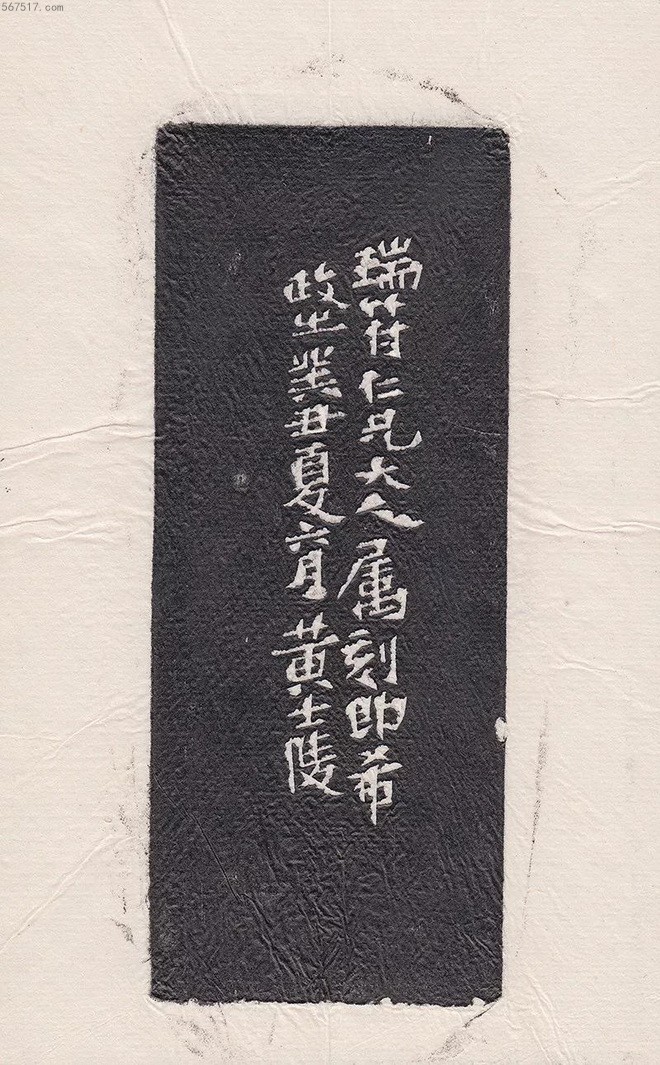 567517.com
瑞苻仁兄大人属刻即希
政之癸丑夏六月黄士陵